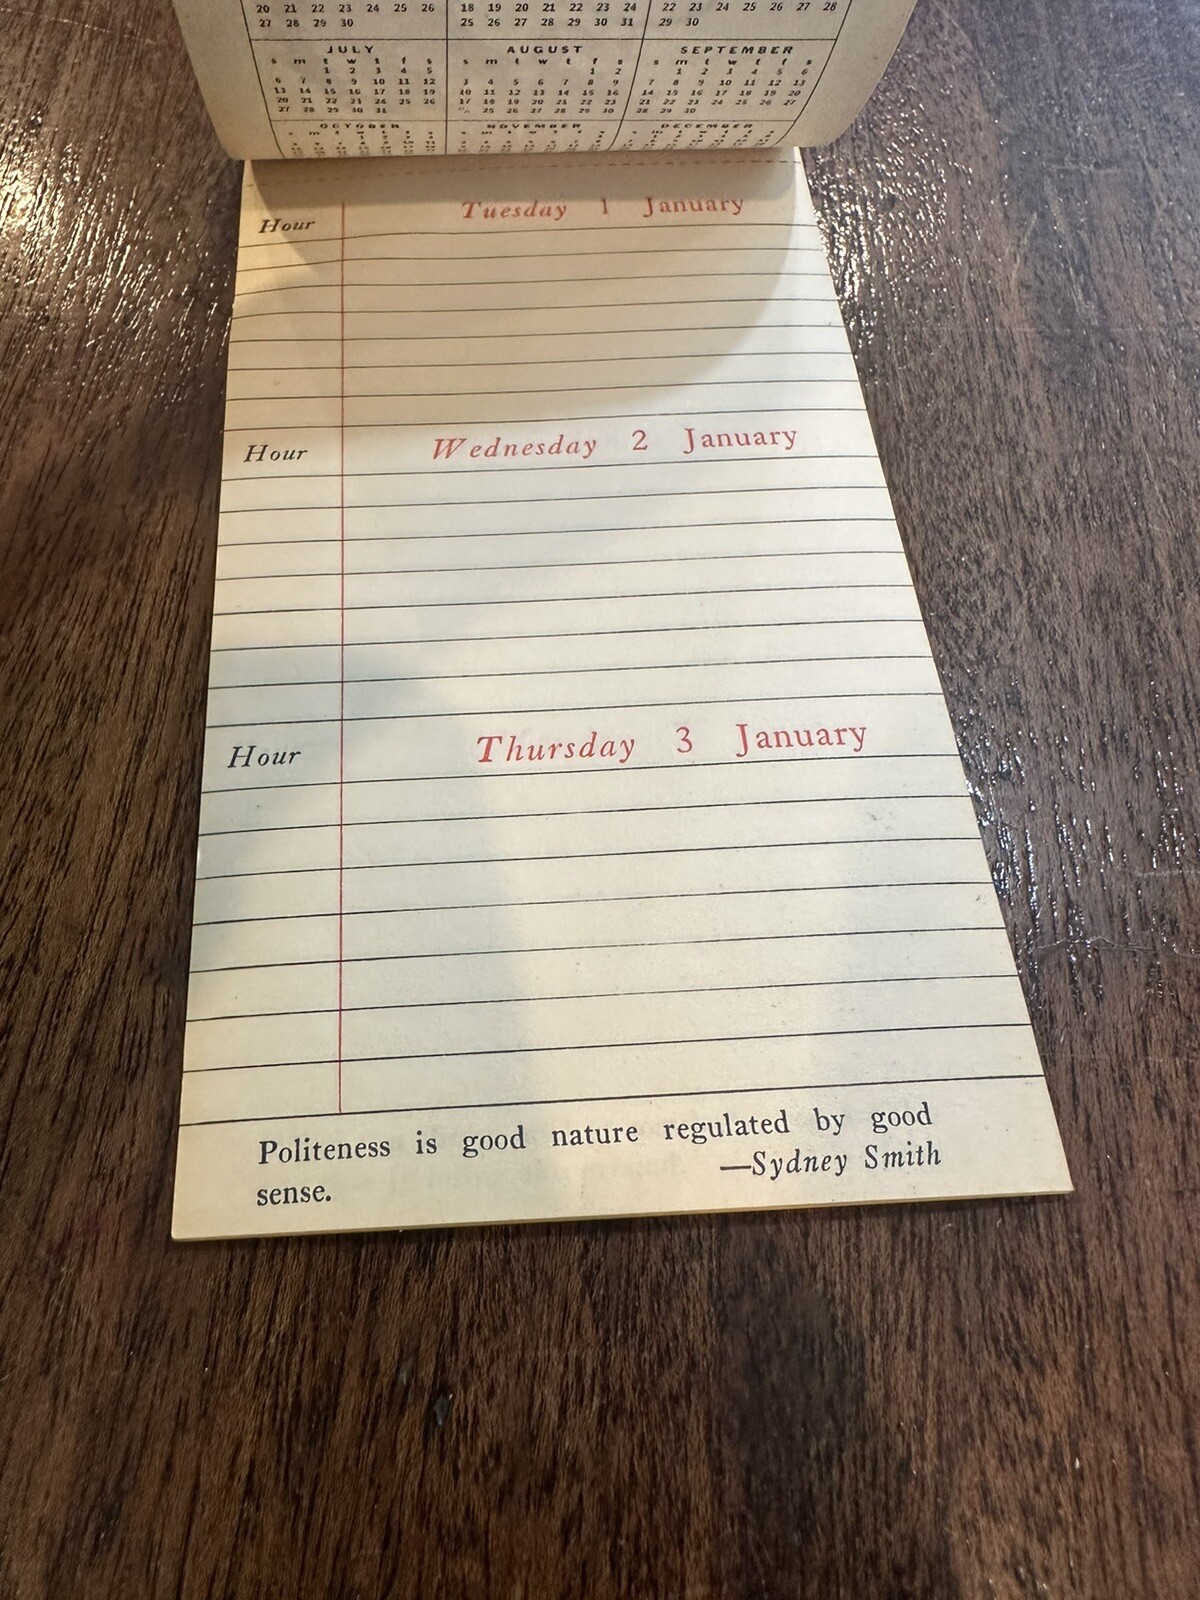 20 21 22 23 24 25 26 18 19 20 21 22 23 24 22 23 24 25 26 27 28
27 28 29 30 25 26 27 28 29 30 31 29 30
JULY AUGUST SEPTEMBER
s m t w t f s s m t w t f s s m t w t f s
1 2 3 4 5 1 2 1 2 3 4 5 6
6 7 8 9 10 11 12 3 4 5 6 7 8 9 7 8 9 10 11 12 13
13 14 15 16 17 18 19 10 11 12 13 14 15 16 14 15 16 17 18 19 20
20 21 22 23 24 25 26 17 18 19 20 21 22 23 21 22 23 24 25 26 27
27 28 29 30 31 25 26 27 28 29 30 28 29 30
OCTOBER NOVEMBER DECEMBER
Hour Tuesday 1 January
Hour Wednesday 2 January
Hour Thursday 3 January
Politeness is good nature regulated by good
sense. —Sydney Smith